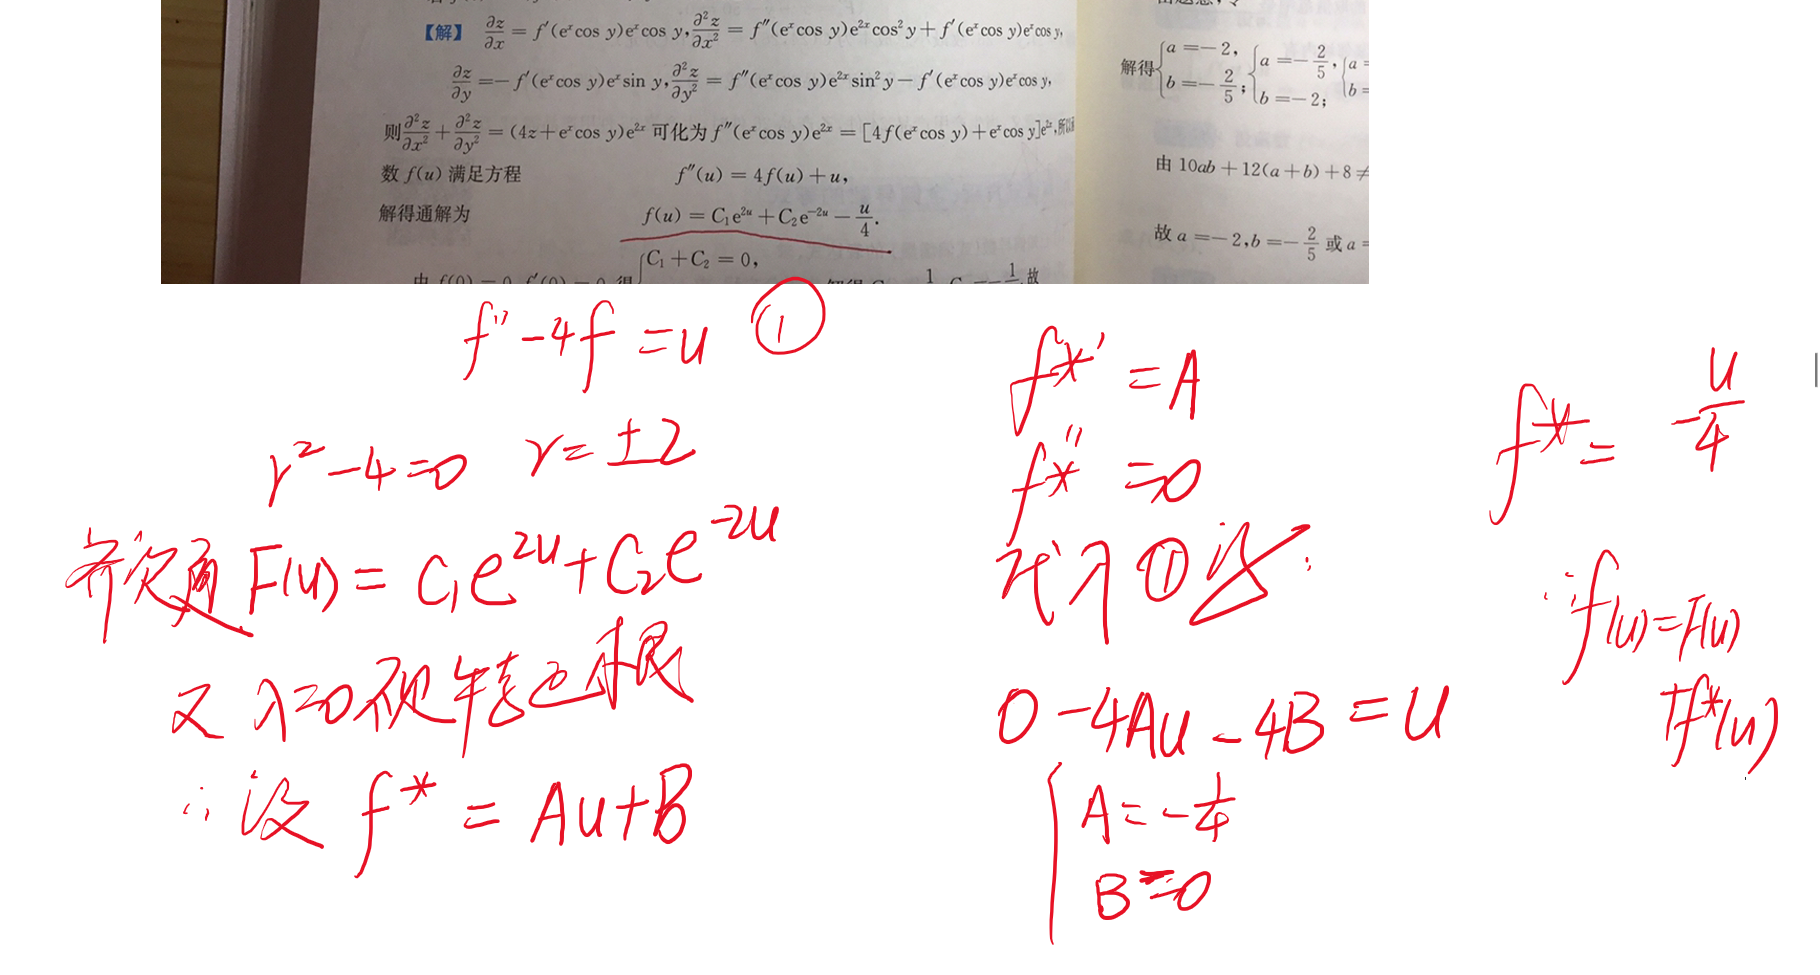 【解】 ∂z/∂x = f′(eˣcos y)eˣcos y, ∂²z/∂x² = f″(eˣcos y)e²ˣcos²y + f′(eˣcos y)eˣcos y,
∂z/∂y = − f′(eˣcos y)eˣsin y, ∂²z/∂y² = f″(eˣcos y)e²ˣsin²y − f′(eˣcos y)eˣcos y,
则∂²z/∂x² + ∂²z/∂y² = (4z + eˣcos y)e²ˣ 可化为 f″(eˣcos y)e²ˣ = [4f(eˣcos y) + eˣcos y]e²ˣ,所以
数 f(u) 满足方程 f″(u) = 4f(u) + u,
解得通解为 f(u) = C₁e²ᵘ + C₂e⁻²ᵘ − u/4.
C₁ + C₂ = 0,
由 f(0) = 0, f′(0) = 0, 得
故
解得{a = −2, b = −2/5; {a = −2/5, b = −2; {a = b =
由 10ab + 12(a + b) + 8 ≠
故 a = −2, b = −2/5 或 a =
f″ − 4f = u ①
r² − 4 = 0 r = ±2
齐次通 F(u) = C₁e²ᵘ + C₂e⁻²ᵘ
又 λ=0 不是特征根
∴ 设 f* = Au + B
f*′ = A
f*″ = 0
代入①式:
0 − 4Au − 4B = u
{A = −1/4
B = 0
f* = −u/4
∴ f(u) = F(u)
+ f*(u)